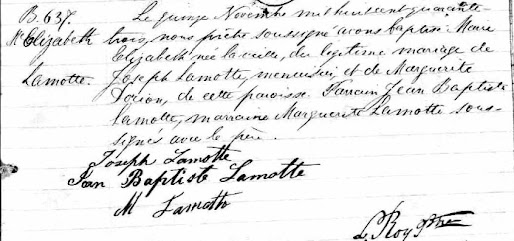 B. 637. Le quinze Novembre mil huit cent quarante
M. Elizabeth trois, nous prêtre soussigné avons baptisé Marie
Lamotte. Elizabeth née la veille, du légitime mariage de
Joseph Lamotte, menuisier et de Marguerite
Dorion, de cette paroisse. Parrain Jean Baptiste
Lamotte, marraine Marguerite Lamotte sous-
signés avec le père.
Joseph Lamotte
Jean Baptiste Lamotte
M Lamothe
Le Roy Ptre